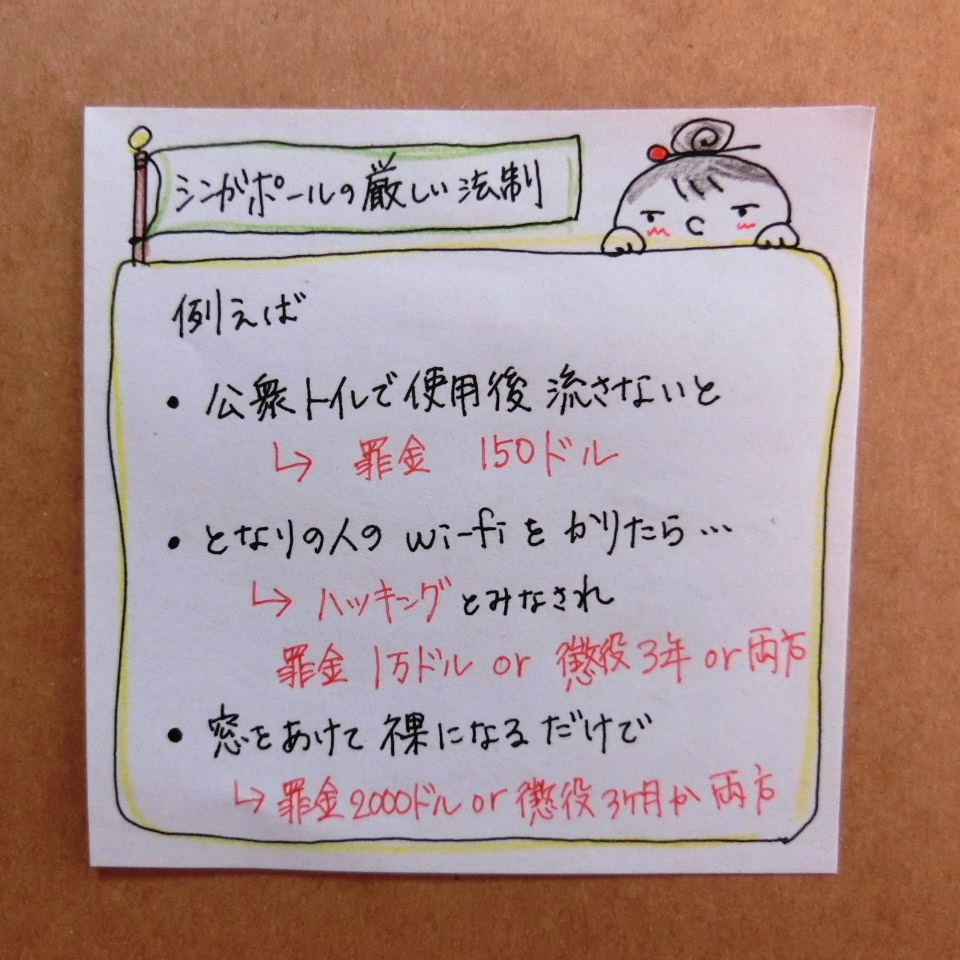 シンガポールの厳しい法制
例えば
• 公衆トイレで使用後 流さないと
↳ 罪金 150ドル
• となりの人の wi-fi を かりたら…
↳ ハッキングとみなされ
罪金 1万ドル or 懲役3年 or 両方
• 窓をあけて 裸になるだけで
↳ 罪金2000ドル or 懲役3ヶ月か 両方